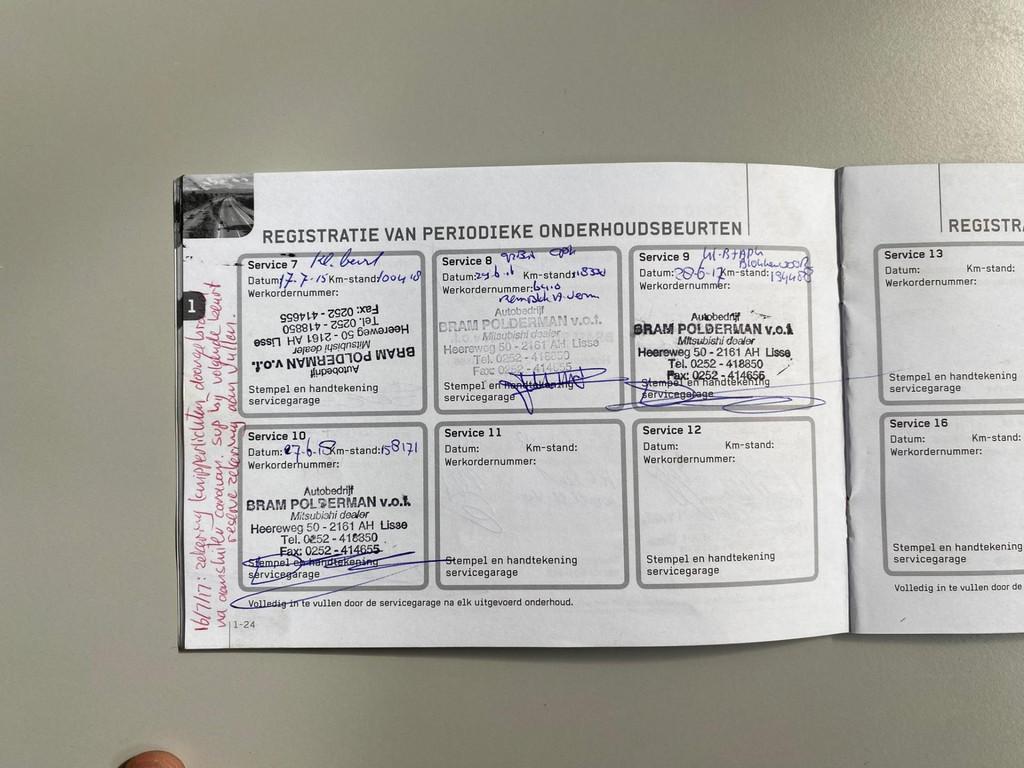 REGISTRATIE VAN PERIODIEKE ONDERHOUDSBEURTEN
Service 7 kl. beurt
Datum: 17-7-15 Km-stand: 100418
Werkordernummer:
Autobedrijf
BRAM POLDERMAN v.o.f.
Mitsubishi dealer
Heereweg 50 - 2161 AH Lisse
Tel. 0252 - 418850
Fax: 0252 - 414655
Stempel en handtekening
servicegarage
Service 8
Datum: Km-stand:
Werkordernummer:
Autobedrijf
BRAM POLDERMAN v.o.f.
Mitsubishi dealer
Heereweg 50 - 2161 AH Lisse
Tel. 0252 - 418850
Fax: 0252 - 414655
Stempel en handtekening
servicegarage
Service 9
Datum: 28-6-17 Km-stand:
Werkordernummer:
Autobedrijf
BRAM POLDERMAN v.o.f.
Mitsubishi dealer
Heereweg 50 - 2161 AH Lisse
Tel. 0252 - 418850
Fax: 0252 - 414655
Stempel en handtekening
servicegarage
Service 10
Datum: 27-6-18 Km-stand: 158171
Werkordernummer:
Autobedrijf
BRAM POLDERMAN v.o.f.
Mitsubishi dealer
Heereweg 50 - 2161 AH Lisse
Tel. 0252 - 418850
Fax: 0252 - 414655
Stempel en handtekening
servicegarage
Service 11
Datum: Km-stand:
Werkordernummer:
Stempel en handtekening
servicegarage
Service 12
Datum: Km-stand:
Werkordernummer:
Stempel en handtekening
servicegarage
Volledig in te vullen door de servicegarage na elk uitgevoerd onderhoud.
1-24
1
16/7/17: zekering knipperlichten doorgebrand
na aansluiten caravan. svp bij volgende beurt
reserve zekering aanvullen.
REGISTRA
Service 13
Datum: Km-stand:
Werkordernummer:
Stempel en handtekening
servicegarage
Service 16
Datum: Km-stand:
Werkordernummer:
Stempel en handtekening
servicegarage
Volledig in te vullen door de